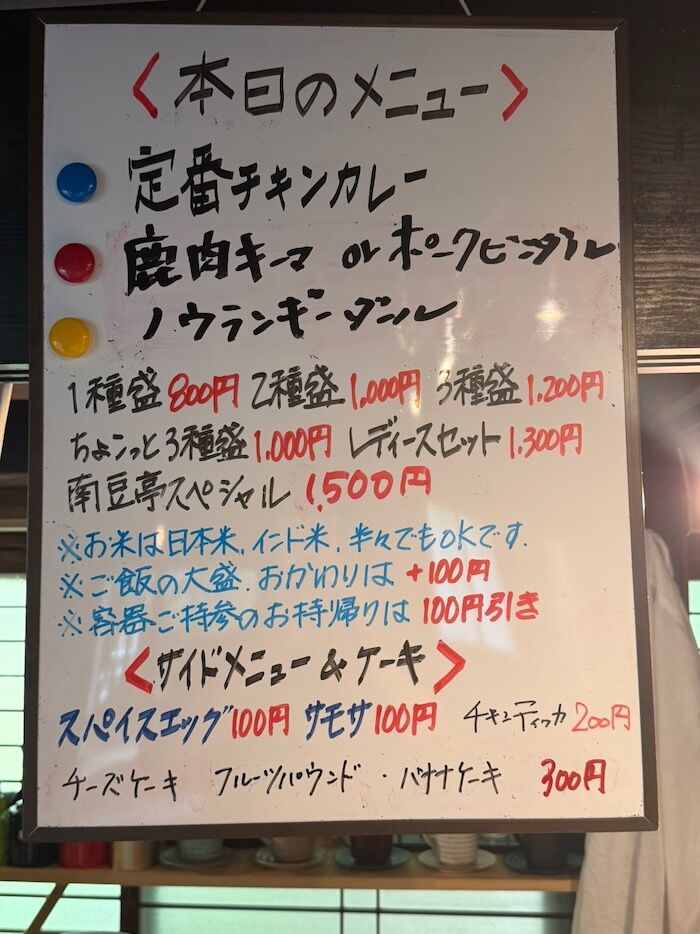 <本日のメニュー>
定番チキンカレー
鹿肉キーマ or ポークビンダルー
ノウランギーダール
1種盛 800円 2種盛 1,000円 3種盛 1,200円
ちょこっと3種盛 1,000円 レディースセット 1,300円
南豆亭スペシャル 1,500円
※お米は日本米、インド米、半々でもOKです.
※ご飯の大盛、おかわりは +100円
※容器ご持参のお持帰りは 100円引き
<サイドメニュー & ケーキ>
スパイスエッグ 100円 サモサ 100円 チキンティッカ 200円
チーズケーキ フルーツパウンド ・ バナナケーキ 300円